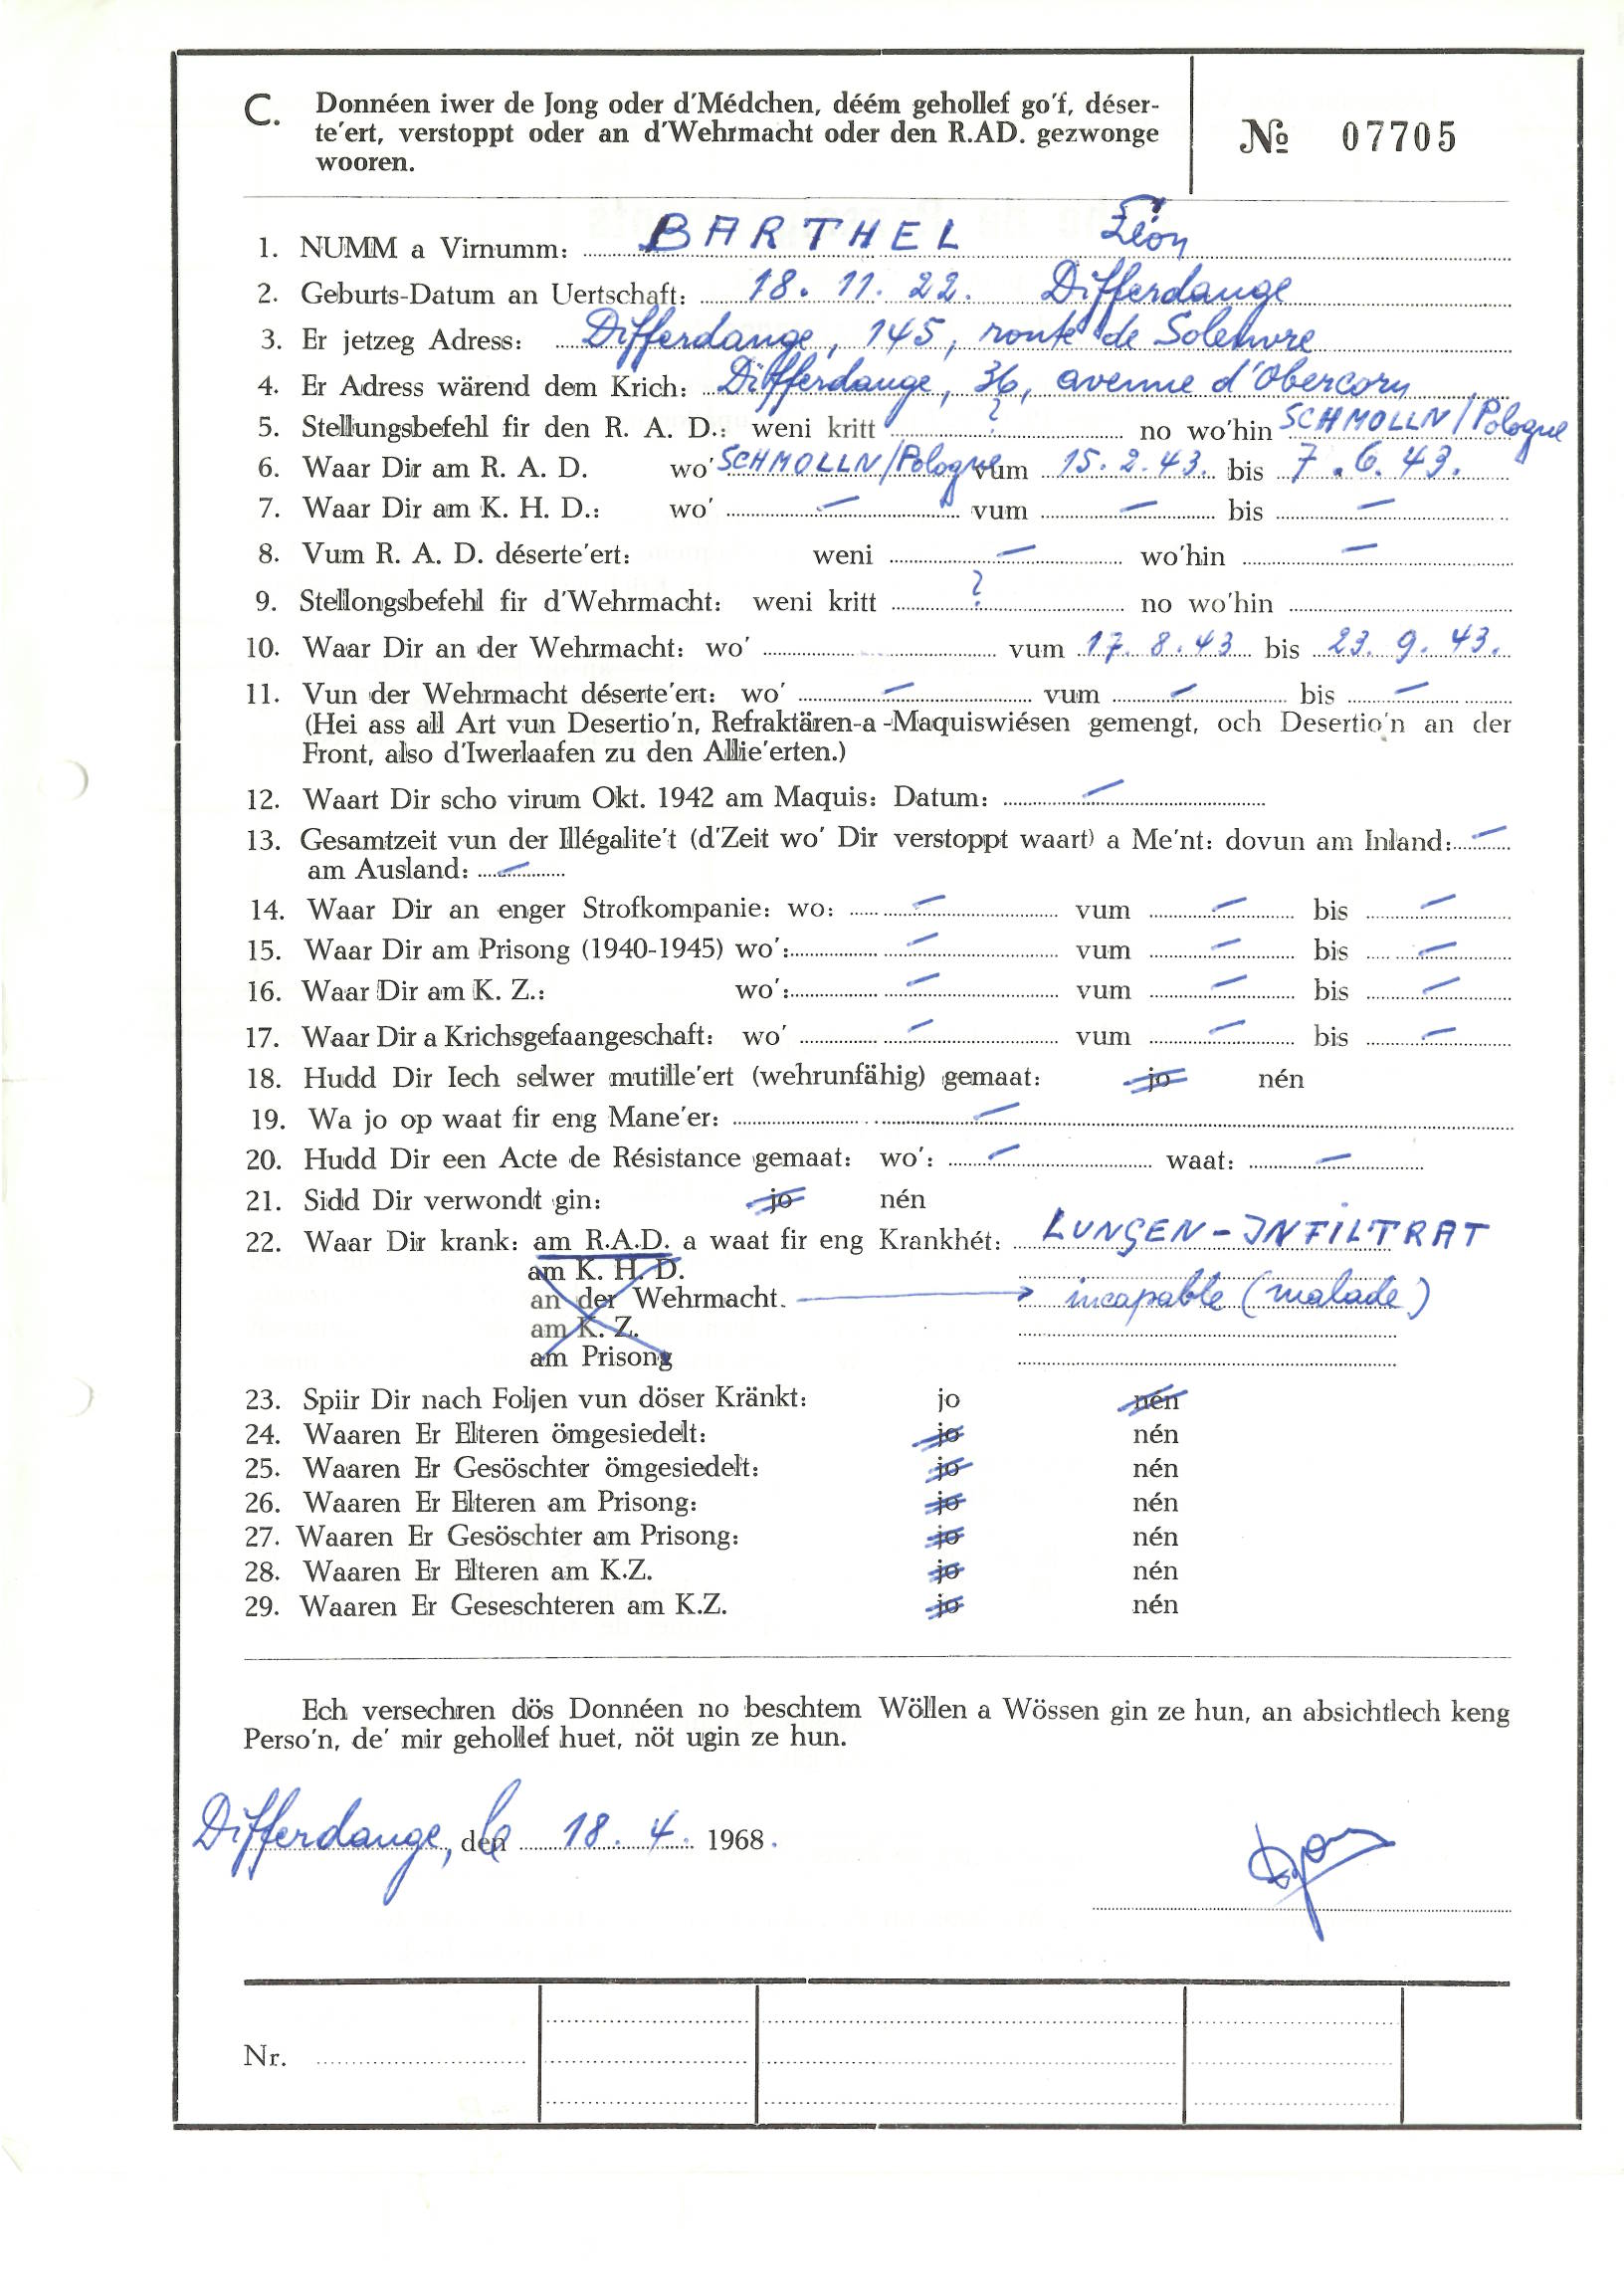 C. Donnéen iwer de Jong oder d'Médchen, déém gehollef go'f, déser-
te'ert, verstoppt oder an d'Wehrmacht oder den R.AD. gezwonge
wooren.
№ 07705
1. NUMM a Virnumm: BARTHEL Léon
2. Geburts-Datum an Uertschaft: 18. 11. 22. Differdange
3. Er jetzeg Adress: Differdange, 145, route de Soleuvre
4. Er Adress wärend dem Krich: Differdange, 36, avenue d'Obercorn
5. Stellungsbefehl fir den R. A. D.: weni kritt ? no wo'hin SCHMOLLN/Pologne
6. Waar Dir am R. A. D. wo' SCHMOLLN/Pologne vum 15. 2. 43. bis 7. 6. 43.
7. Waar Dir am K. H. D.: wo' — vum — bis —
8. Vum R. A. D. déserte'ert: weni — wo'hin —
9. Stellongsbefehl fir d'Wehrmacht: weni kritt ? no wo'hin
10. Waar Dir an der Wehrmacht: wo' vum 17. 8. 43 bis 23. 9. 43.
11. Vun der Wehrmacht déserte'ert: wo' — vum — bis —
(Hei ass all Art vun Desertio'n, Refraktären-a-Maquiswiésen gemengt, och Desertio'n an der
Front, also d'Iwerlaafen zu den Allie'erten.)
12. Waart Dir scho virum Okt. 1942 am Maquis: Datum: —
13. Gesamtzeit vun der Illégalite't (d'Zeit wo' Dir verstoppt waart) a Me'nt: dovun am Inland: —
am Ausland: —
14. Waar Dir an enger Strofkompanie: wo: — vum — bis —
15. Waar Dir am Prisong (1940-1945) wo': — vum — bis —
16. Waar Dir am K. Z.: wo': — vum — bis —
17. Waar Dir a Krichsgefaangeschaft: wo' — vum — bis —
18. Hudd Dir Iech selwer mutille'ert (wehrunfähig) gemaat: jo nén
19. Wa jo op waat fir eng Mane'er: —
20. Hudd Dir een Acte de Résistance gemaat: wo': — waat: —
21. Sidd Dir verwondt gin: jo nén
22. Waar Dir krank: am R.A.D. a waat fir eng Krankhét: LUNGEN-INFILTRAT
am K. H. D.
an der Wehrmacht. incapable (malade)
am K. Z.
am Prisong
23. Spiir Dir nach Foljen vun döser Kränkt: jo nén
24. Waaren Er Elteren ömgesiedelt: jo nén
25. Waaren Er Gesöschter ömgesiedelt: jo nén
26. Waaren Er Elteren am Prisong: jo nén
27. Waaren Er Gesöschter am Prisong: jo nén
28. Waaren Er Elteren am K.Z. jo nén
29. Waaren Er Geseschteren am K.Z. jo nén
Ech versechren dös Donnéen no beschtem Wöllen a Wössen gin ze hun, an absichtlech keng
Perso'n, de' mir gehollef huet, nöt ugin ze hun.
Differdange, den le 18. 4. 1968.
Nr.